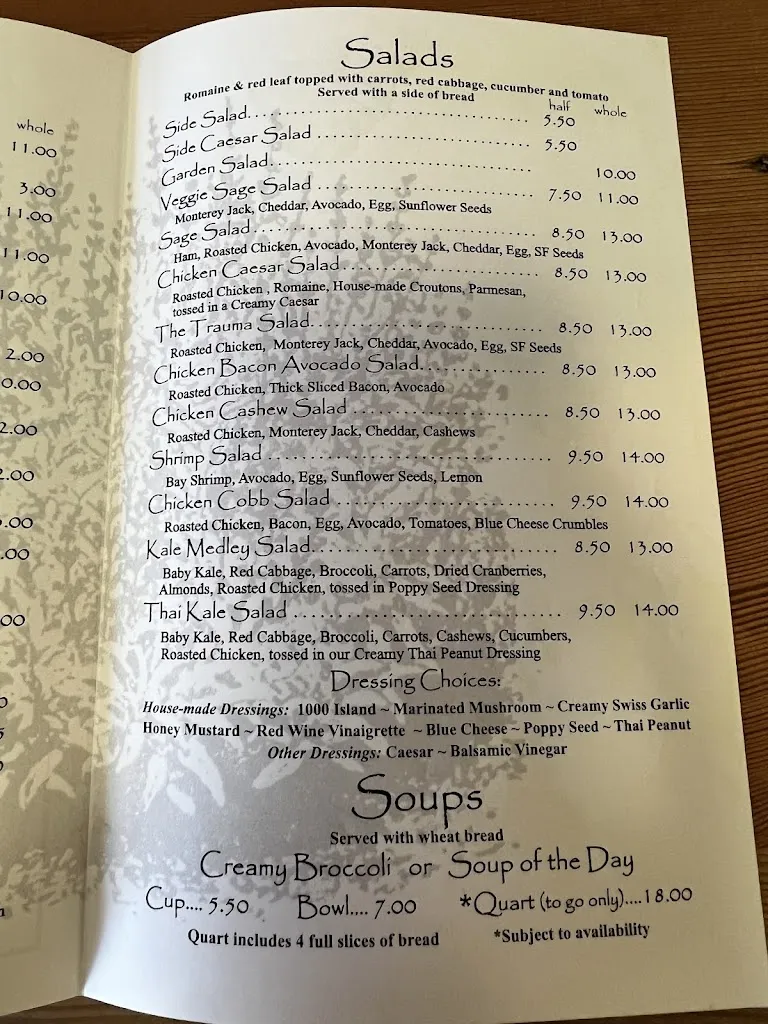 whole
11.00
3.00
11.00
11.00
10.00
2.00
0.00
2.00
2.00
.00
.00
00
Salads
Romaine & red leaf topped with carrots, red cabbage, cucumber and tomato
Served with a side of bread
half whole
Side Salad 5.50
Side Caesar Salad 5.50
Garden Salad 10.00
Veggie Sage Salad 7.50 11.00
Monterey Jack, Cheddar, Avocado, Egg, Sunflower Seeds
Sage Salad 8.50 13.00
Ham, Roasted Chicken, Avocado, Monterey Jack, Cheddar, Egg, SF Seeds
Chicken Caesar Salad 8.50 13.00
Roasted Chicken , Romaine, House-made Croutons, Parmesan,
tossed in a Creamy Caesar
The Trauma Salad 8.50 13.00
Roasted Chicken, Monterey Jack, Cheddar, Avocado, Egg, SF Seeds
Chicken Bacon Avocado Salad 8.50 13.00
Roasted Chicken, Thick Sliced Bacon, Avocado
Chicken Cashew Salad 8.50 13.00
Roasted Chicken, Monterey Jack, Cheddar, Cashews
Shrimp Salad 9.50 14.00
Bay Shrimp, Avocado, Egg, Sunflower Seeds, Lemon
Chicken Cobb Salad 9.50 14.00
Roasted Chicken, Bacon, Egg, Avocado, Tomatoes, Blue Cheese Crumbles
Kale Medley Salad 8.50 13.00
Baby Kale, Red Cabbage, Broccoli, Carrots, Dried Cranberries,
Almonds, Roasted Chicken, tossed in Poppy Seed Dressing
Thai Kale Salad 9.50 14.00
Baby Kale, Red Cabbage, Broccoli, Carrots, Cashews, Cucumbers,
Roasted Chicken, tossed in our Creamy Thai Peanut Dressing
Dressing Choices:
House-made Dressings: 1000 Island ~ Marinated Mushroom ~ Creamy Swiss Garlic
Honey Mustard ~ Red Wine Vinaigrette ~ Blue Cheese ~ Poppy Seed ~ Thai Peanut
Other Dressings: Caesar ~ Balsamic Vinegar
Soups
Served with wheat bread
Creamy Broccoli or Soup of the Day
Cup.... 5.50 Bowl.... 7.00 *Quart (to go only)....18.00
Quart includes 4 full slices of bread *Subject to availability